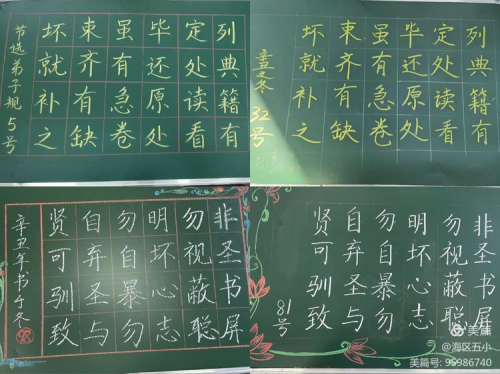 列典籍有
定处读看
毕还原处
虽有急卷
束齐有缺
坏就补之
节选弟子规 5号
列典籍有
定处读看
毕还原处
虽有急卷
束齐有缺
坏就补之
辛丑之冬 32号
非圣书屏
勿视蔽聪
明坏心志
勿自暴勿
自弃圣与
贤可驯致
辛丑年书于冬
非圣书屏
勿视蔽聪
明坏心志
勿自暴勿
自弃圣与
贤可驯致
81号
美篇
@海区五小
美篇号: 95986740